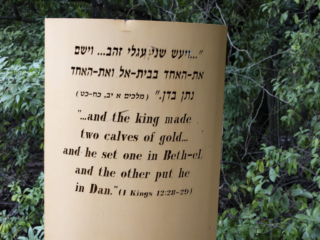 "...ויעש שני עגלי זהב... וישם
את-האחד בבית-אל ואת-האחד
נתן בדן." (מלכים א יב, כח-כט)
"...and the king made
two calves of gold...
and he set one in Beth-el,
and the other put he
in Dan."(1 Kings 12:28-29)